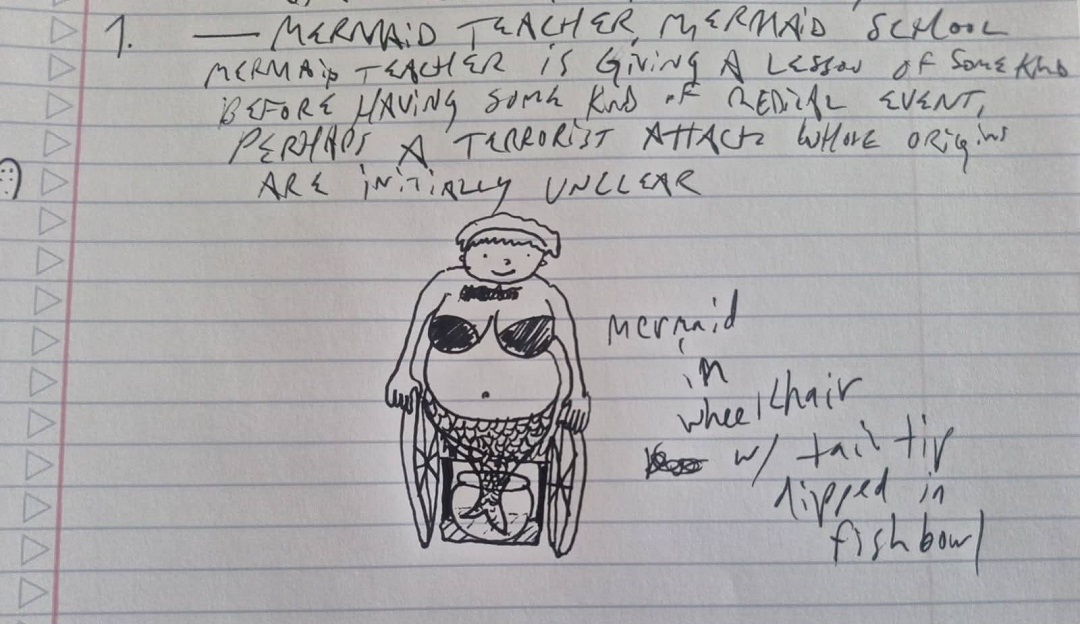 1. — MERMAiD TEACHER, MERMAiD SCHOOL
MERMAiD TEACHER iS GiViNG A LESSON OF SOME KIND
BEFORE HAViNG SOME KIND OF MEDICAL EVENT,
PERHAPS A TERRORiST ATTACK WHOSE ORiGiNS
ARE iNiTiALLY UNCLEAR
mermaid
in
wheelchair
w/ tail tip
dipped in
fishbowl